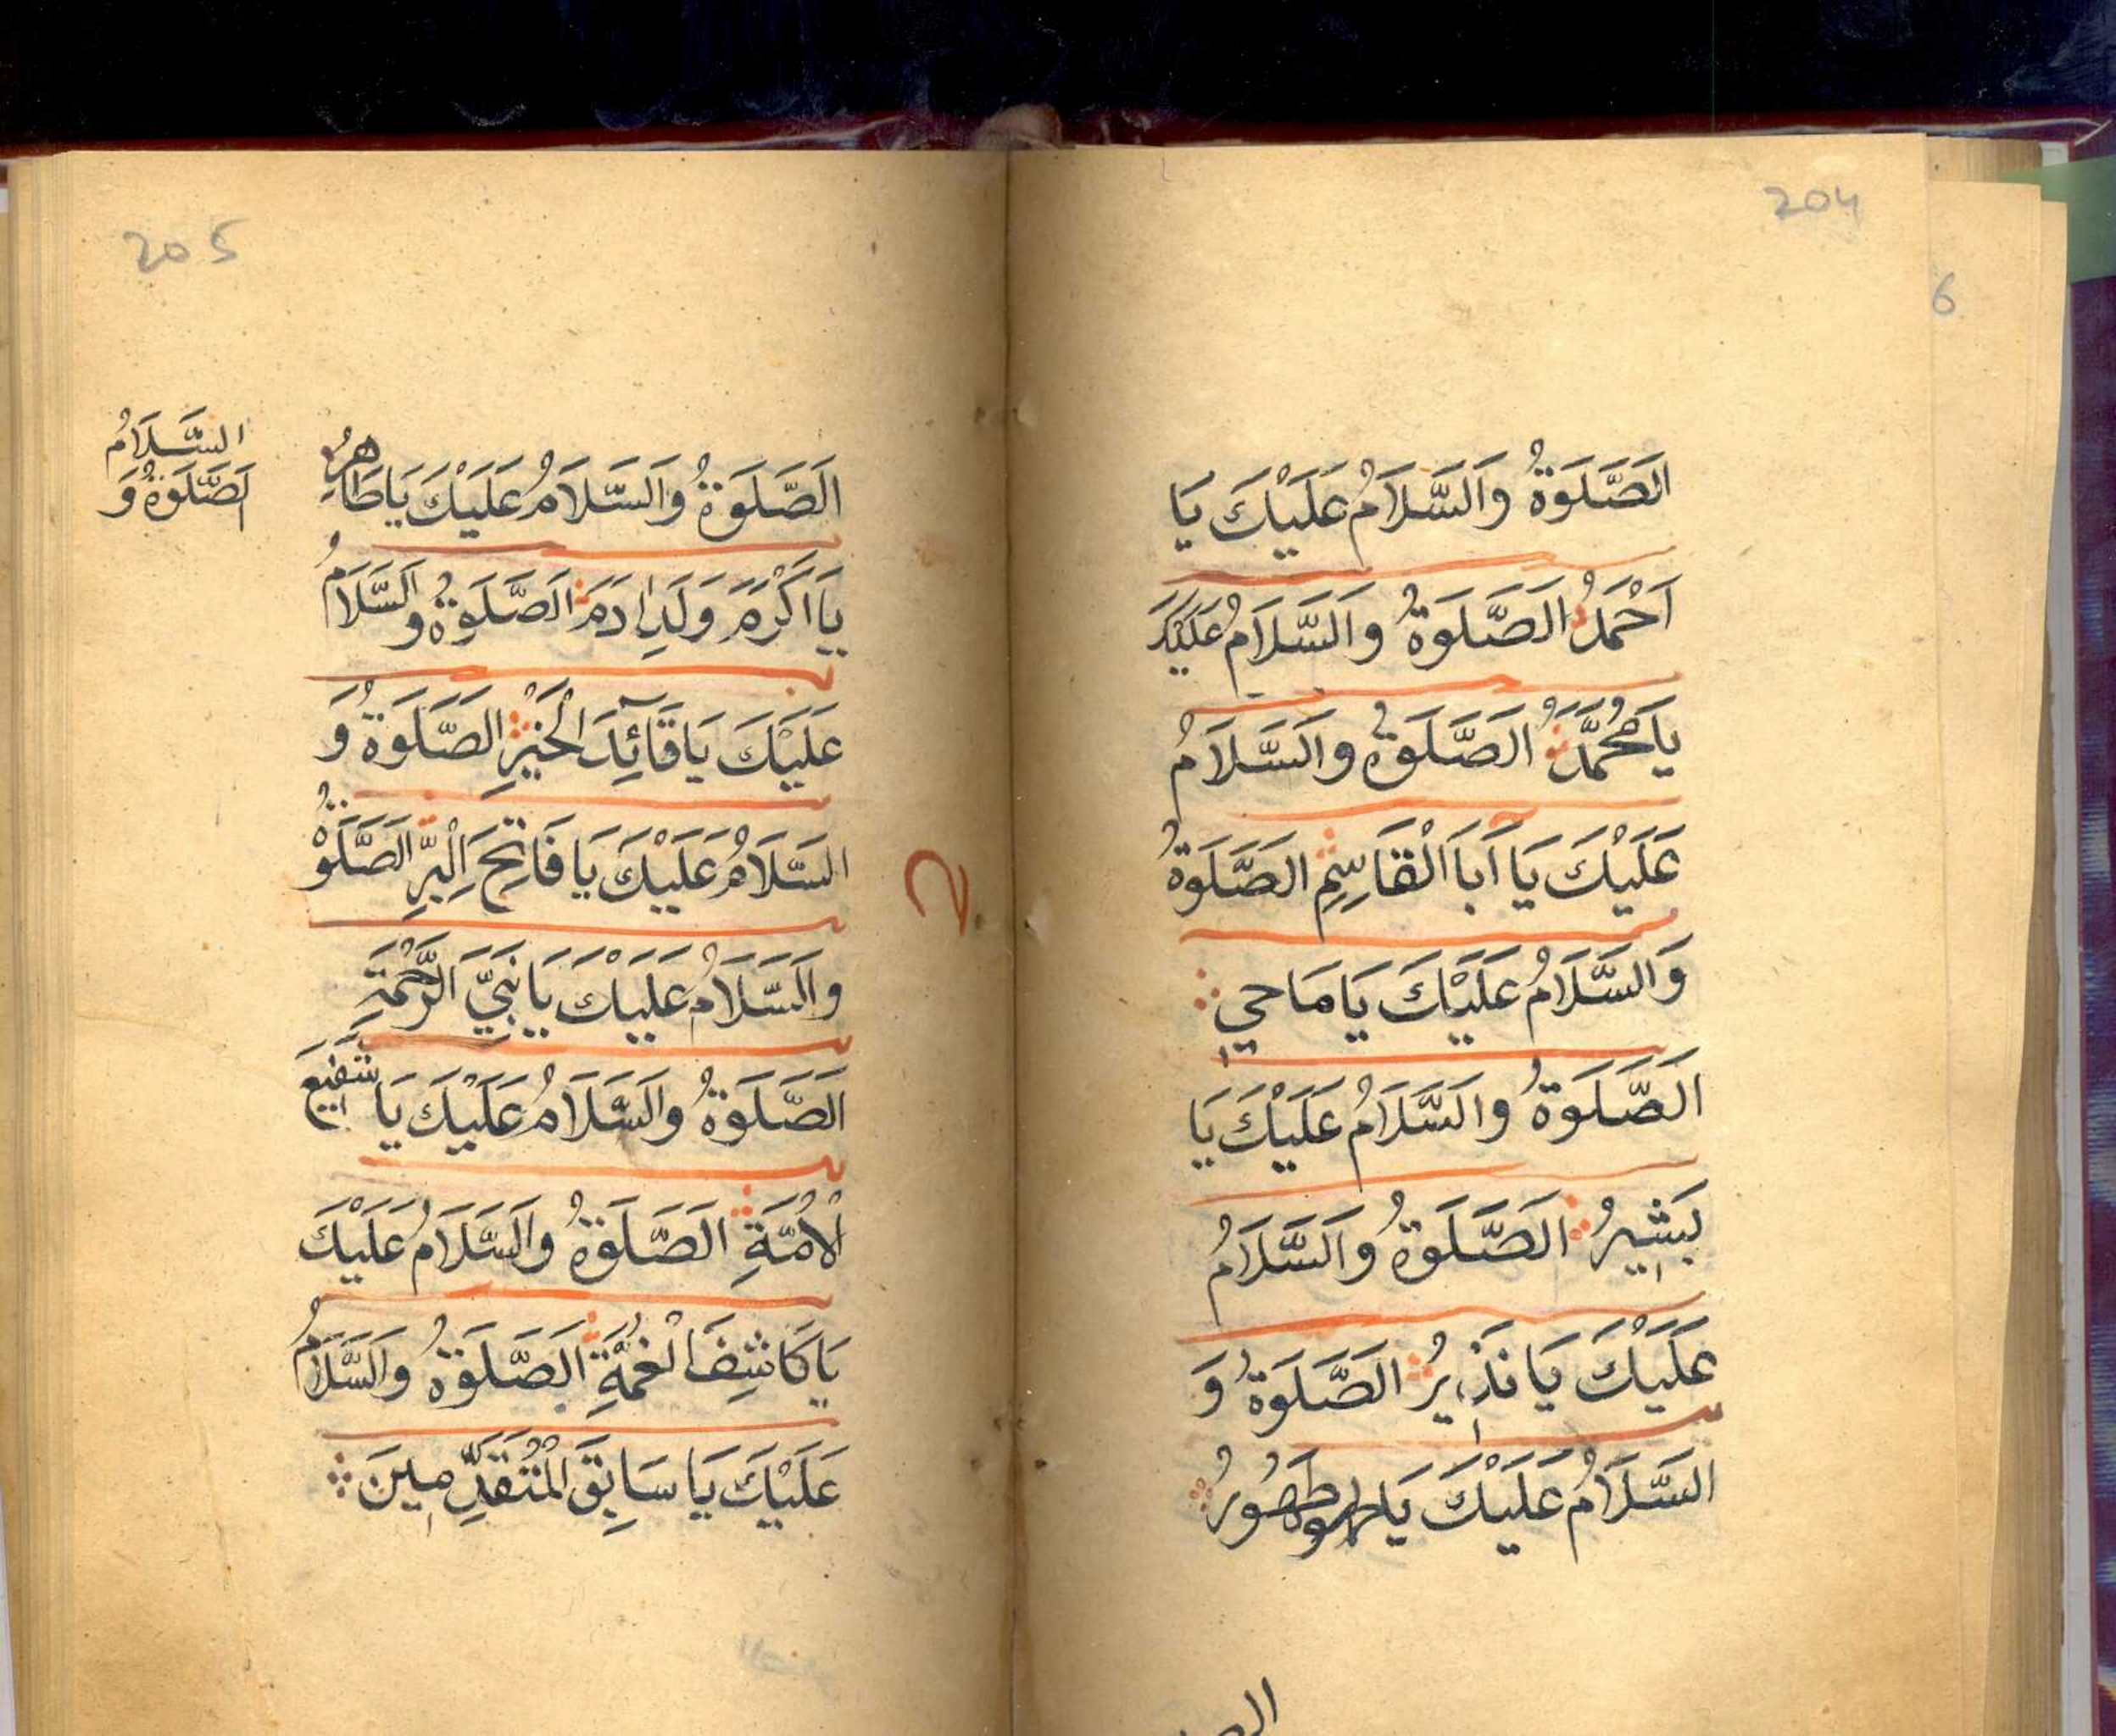 204
6
اَلصَّلَوةُ وَالسَّلَامُ عَلَيْكَ يَا
اَحْمَدُ اَلصَّلَوةُ وَالسَّلَامُ عَلَيْكَ
يَا مُحَمَّدُ اَلصَّلَوةُ وَالسَّلَامُ
عَلَيْكَ يَا اَبَا الْقَاسِمِ اَلصَّلَوةُ
وَالسَّلَامُ عَلَيْكَ يَا مَاحِي
اَلصَّلَوةُ وَالسَّلَامُ عَلَيْكَ يَا
بَشِيرُ اَلصَّلَوةُ وَالسَّلَامُ
عَلَيْكَ يَا نَذِيرُ اَلصَّلَوةُ وَ
السَّلَامُ عَلَيْكَ يَا طَهُورُ
205
اَلصَّلَوةُ وَالسَّلَامُ عَلَيْكَ يَا طَاهِرُ
يَا اَكْرَمَ وَلَدِ اٰدَمَ اَلصَّلَوةُ وَالسَّلَامُ
عَلَيْكَ يَا قَآئِدَ الْخَيْرِ اَلصَّلَوةُ وَ
السَّلَامُ عَلَيْكَ يَا فَاتِحَ الْبِرِّ اَلصَّلَوةُ
وَالسَّلَامُ عَلَيْكَ يَا نَبِيَّ الرَّحْمَةِ
اَلصَّلَوةُ وَالسَّلَامُ عَلَيْكَ يَا شَفِيعَ
الْاُمَّةِ اَلصَّلَوةُ وَالسَّلَامُ عَلَيْكَ
يَا كَاشِفَ الْغُمَّةِ اَلصَّلَوةُ وَالسَّلَامُ
عَلَيْكَ يَا سَابِقَ الْمُتَقَدِّمِينَ
السَّلَامُ
اَلصَّلَوةُ وَ